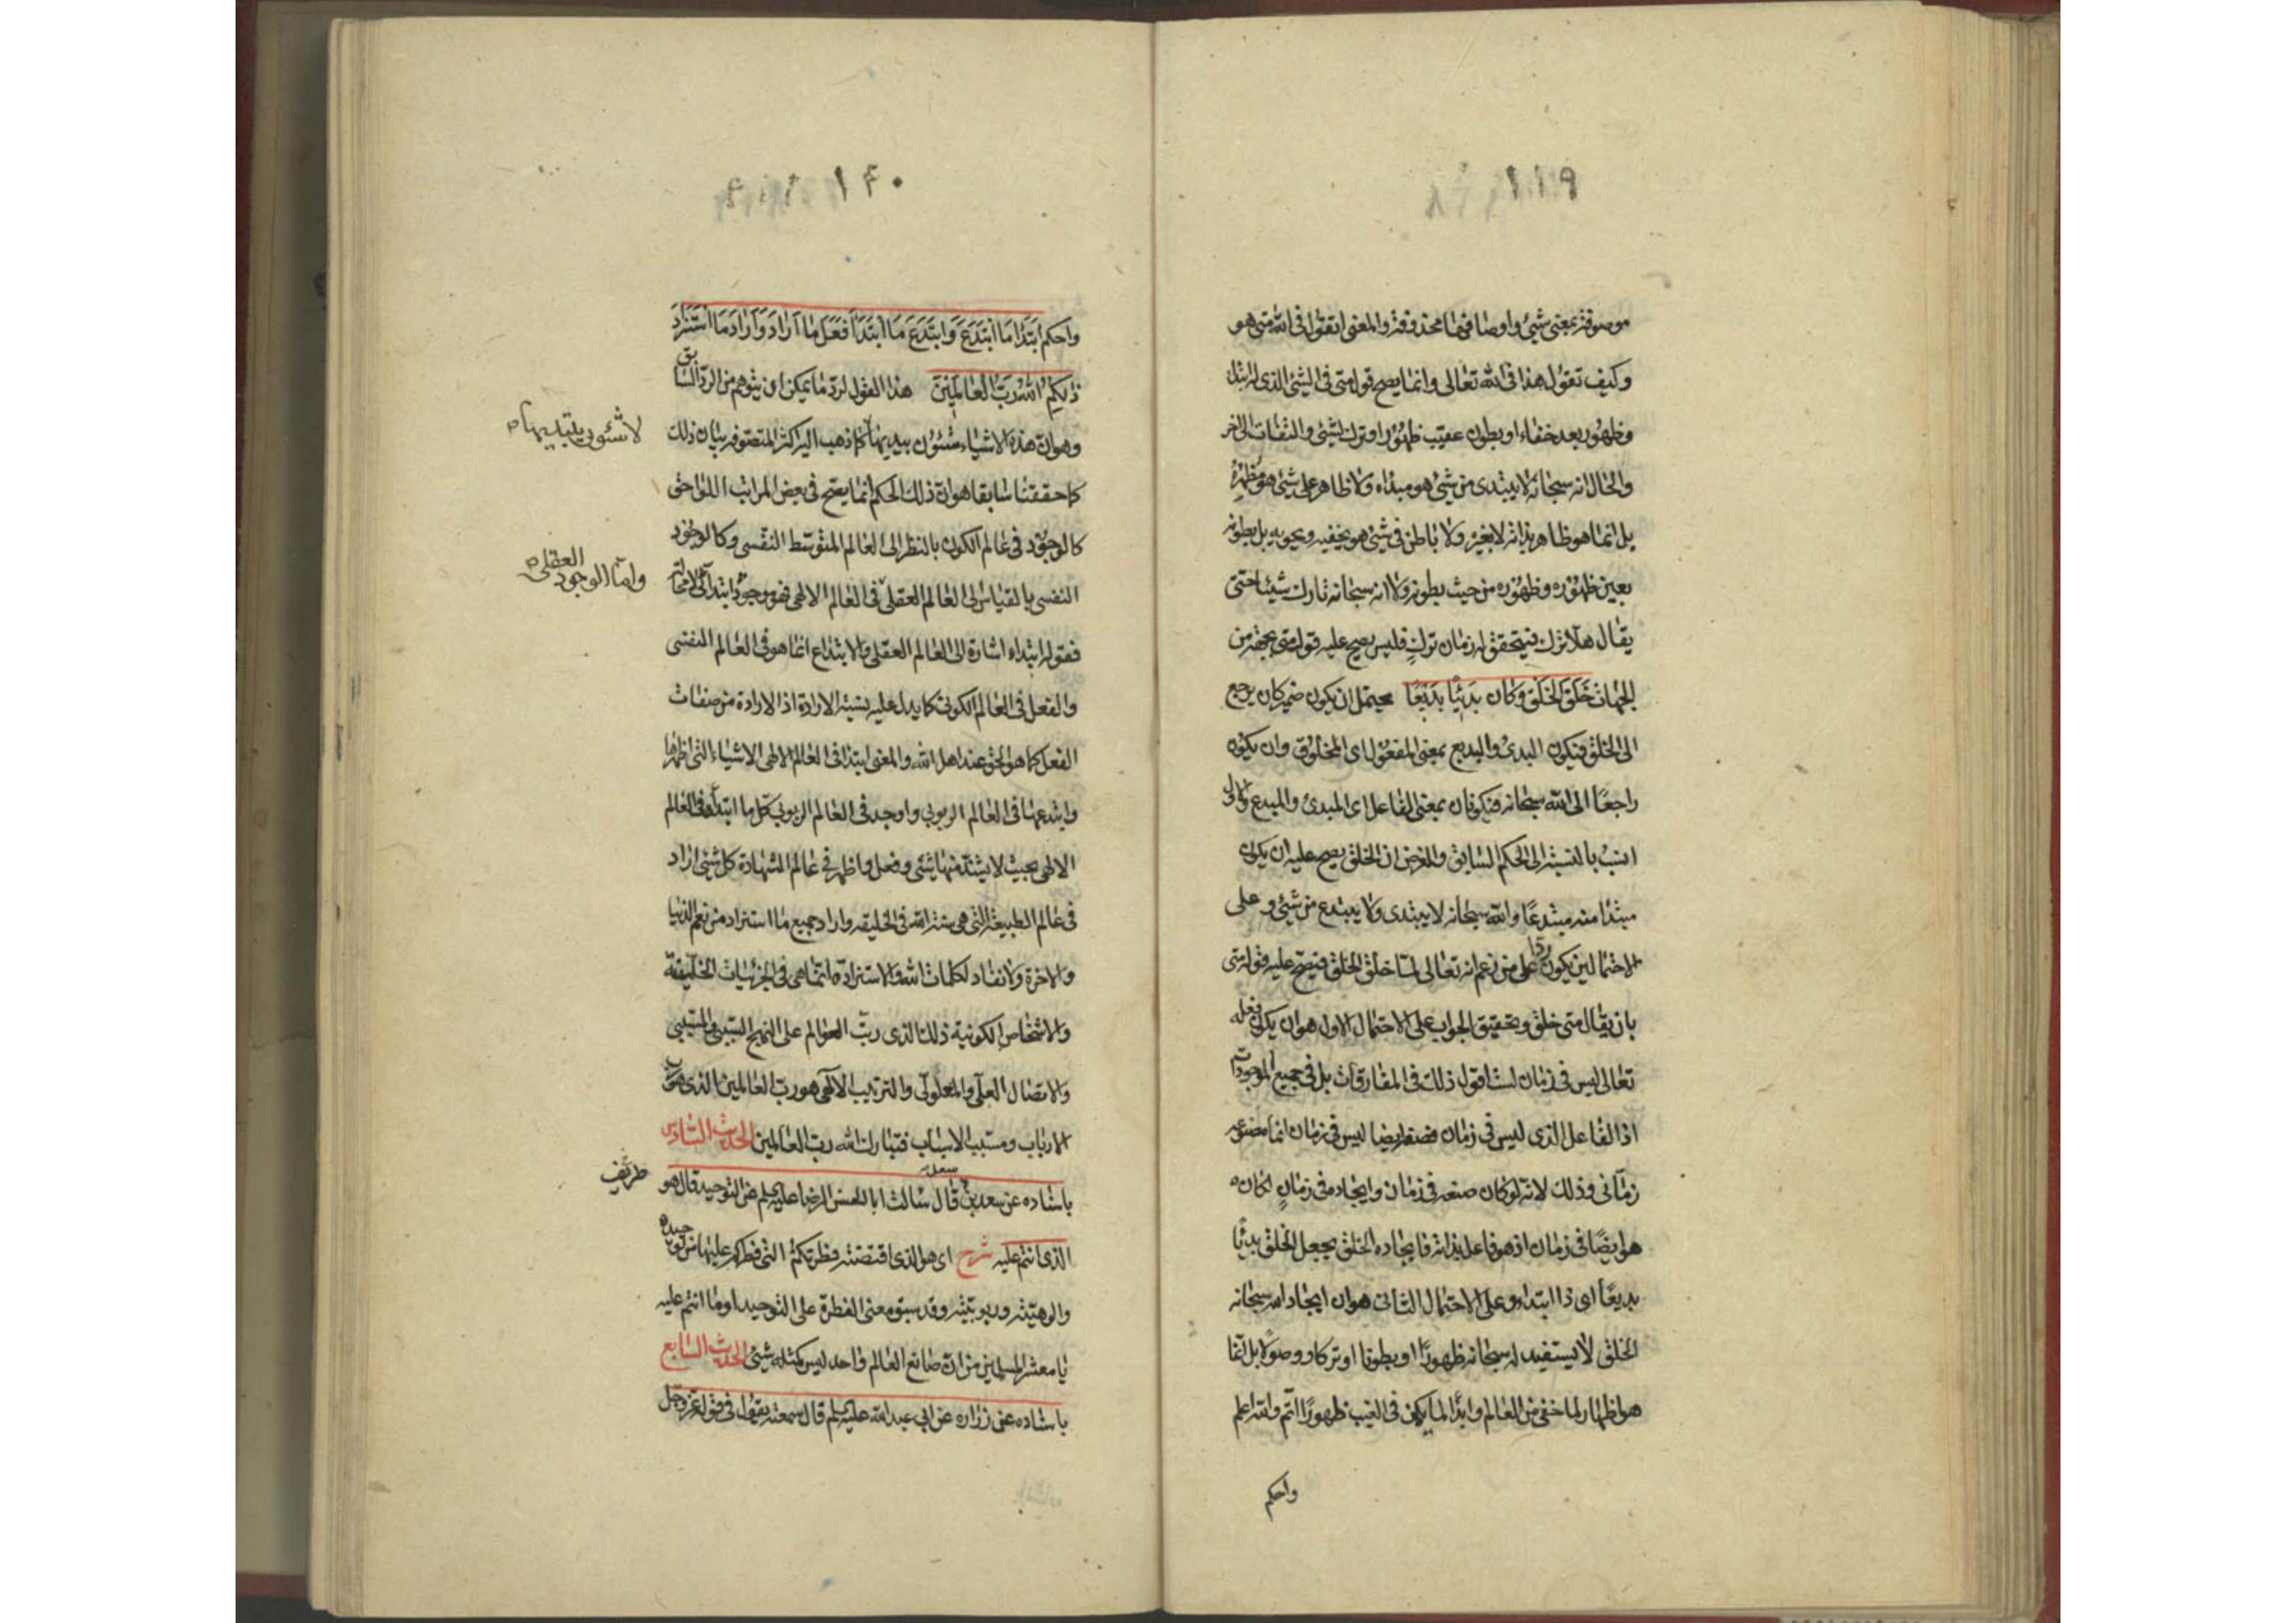 ١١٩
موصوفة بمعنى شیئ واوصافها محذوفة والمعنى اتقول فی الله متى هو
وكيف تقول هذا فی الله تعالى وانما يصح قول متى فی الشیئ الذی له بدء
وظهور بعد خفاء او بطون عقيب ظهور او ترك لشیئ والتفات الى اخر
والحال انه سبحانه لا يبتدی من شیئ هو مبداه ولا ظاهر على شیئ هو مظهره
بل انما هو ظاهر بذاته لا بغيره ولا باطن فی شیئ هو يخفيه ويحويه بل بطونه
بعين ظهوره وظهوره من حيث بطونه ولا انه سبحانه تارك شيئا حتى
يقال هلا ترك فيتحقق له زمان ترك فليس يصح عليه قول متى بجهة من
الجهات خَلَقَ الخَلْقَ وَكان بَديئًا بَديعًا يحتمل ان يكون ضمير كان يرجع
الى الخلق فيكون البدئ والبديع بمعنى المفعول ای المخلوق وان يكون
راجعًا الى الله سبحانه فيكونان بمعنى الفاعل ای المبدئ والمبدع والاول
انسب بالنسبة الى الحكم السابق والغرض ان الخلق يصح عليه ان يكون
مبتدأ منه مبتدعًا والله سبحانه لا يبتدی ولا يبتدع من شیئ وعلى
الاحتمالين يكون ردا على من زعم انه تعالى لما خلق الخلق فيصح عليه قول متى
بان يقال متى خلق وتحقيق الجواب على الاحتمال الاول هو ان يكون فعله
تعالى ليس فی زمان لست اقول ذلك فی المفارقات بل فی جميع الموجودات
اذ الفاعل الذی ليس فی زمان فصنعه ايضا ليس فی زمان انما مصنوعه
زمانی وذلك لانه لو كان صنعه فی زمان وايجاده فی زمانٍ لكان
هو ايضًا فی زمان اذ هو فاعل بذاته فايجاده الخلق يجعل الخلق بدئًا
بديعًا ای ذا ابتداء وعلى الاحتمال الثانی هو ان ايجاد الله سبحانه
الخلق لا يستفيد له سبحانه ظهورًا او بطونا او تركا ووصولا بل انما
هو اظهار لما خفی من العالم وابداء لما يكون فی الغيب ظهورًا اتم والله اعلم
واحكم
١٢٠
واحكم ابْتَدَأ مَا ابْتَدَعَ وَابْتَدَعَ مَا ابْتَدَأ فَفَعَلَ مَا اَرَادَ وَاَرَادَ مَا اسْتَزَادَ
ذلِكُمُ اللهُ رَبُّ العَالَمِينَ هذا القول لردّ ما يمكن ان يتوهم من الردّ السابق
وهو ان هذه الاشياء شئون يبديها كما ذهب اليه اكثر المتصوفه بيان ذلك
لا شئون يبتديها
كما حققنا سابقا هو ان ذلك الحكم انما يصح فی بعض المراتب اللواحق
كالوجود فی عالم الكون بالنظر الى العالم المتوسط النفسی وكالوجود
النفسی بالقياس الى العالم العقلی فی العالم الالهی فهو موجود ابتدائی لا محالة
واما الوجود العقلی
فقوله ابتداء اشارة الى العالم العقلی والابتداع انما هو فی العالم النفسی
والفعل فی العالم الكونی كما يدل عليه نسبة الارادة اذ الارادة من صفات
الفعل كما هو الحق عند اهل الله والمعنى ابتدأ فی العالم الالهی الاشياء التی اظهرها
وابتدعها فی العالم الربوبی واوجد فی العالم الربوبی كل ما ابتدأه فی العالم
الالهی بحيث لا يشذ منها شیئ وفعل واظهر فی عالم الشهادة كل شیئ اراد
فی عالم الطبيعة التی هی سنة الله فی الخليقه واراد جميع ما استزاد من نعم الدنيا
والاخرة ولا نفاد لكلمات الله والاستزادة انما هی فی الجزئيات الخليقية
والاشخاص الكونية ذلك الذی ربّ العوالم على النهج السببی والمسببی
والاتصال العلّی والمعلولی والترتيب الالهی هو ربّ العالمين الذی هو رب
الارباب ومسبب الاسباب فتبارك الله رب العالمين الحديث السادس
باسناده عن سعد بن قال سالت ابا الحسن الرضا عليه السلم عن التوحيد قال هو
طريف
الذی انتم عليه شرح ای هو الذی اقتضته فطرتكم التی فطركم عليها من توحيده
والوهيته وربوبيته وقد سبق معنى الفطرة على التوحيد او ما انتم عليه
يا معشر المسلمين من ان صانع العالم واحد ليس كمثله شیئ الحديث السابع
باسناده عن زراره عن ابی عبد الله عليه السلم قال سمعته يقول فی قوله عز وجل